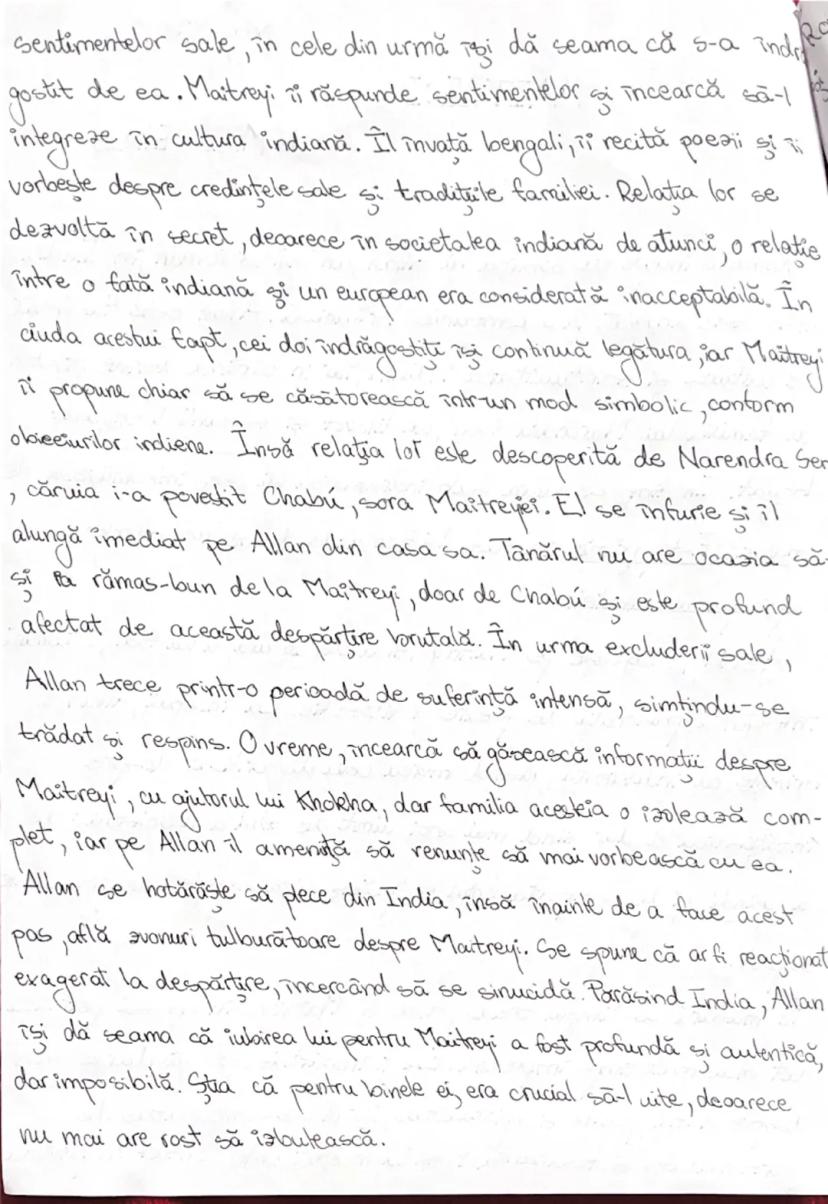 sentimentelor sale, în cele din urmă își dă seama că s-a îndră
gostit de ea. Maitreyi îi răspunde sentimentelor și încearcă să-l
integreze în cultura indiană. Îl învață bengali, îi recită poezii și îi
vorbește despre credințele sale și tradițiile familiei. Relația lor se
dezvoltă în secret, deoarece în societatea indiană de atunci, o relație
între o fată indiană și un european era considerată inacceptabilă. În
ciuda acestui fapt, cei doi îndrăgostiți își continuă legătura, iar Maitreyi
îi propune chiar să se căsătorească într-un mod simbolic, conform
obiceiurilor indiene. Însă relația lor este descoperită de Narendra Sen
, căruia i-a povestit Chabú, sora Maitreyei. El se înfurie și îl
alungă imediat pe Allan din casa sa. Tânărul nu are ocazia să-
și ia rămas-bun de la Maitreyi, doar de Chabú și este profund
afectat de această despărțire brutală. În urma excluderii sale,
Allan trece printr-o perioadă de suferință intensă, simțindu-se
trădat și respins. O vreme, încearcă să găsească informații despre
Maitreyi, cu ajutorul lui Khokha, dar familia acesteia o izolează com-
plet, iar pe Allan îl amenință să renunțe să mai vorbească cu ea.
Allan se hotărăște să plece din India, însă înainte de a face acest
pas, află zvonuri tulburătoare despre Maitreyi. Se spune că ar fi reacționat
exagerat la despărțire, încercând să se sinucidă. Părăsind India, Allan
își dă seama că iubirea lui pentru Maitreyi a fost profundă și autentică,
dar imposibilă. Știa că pentru binele ei, era crucial să-l uite, deoarece
nu mai are rost să izbutească.